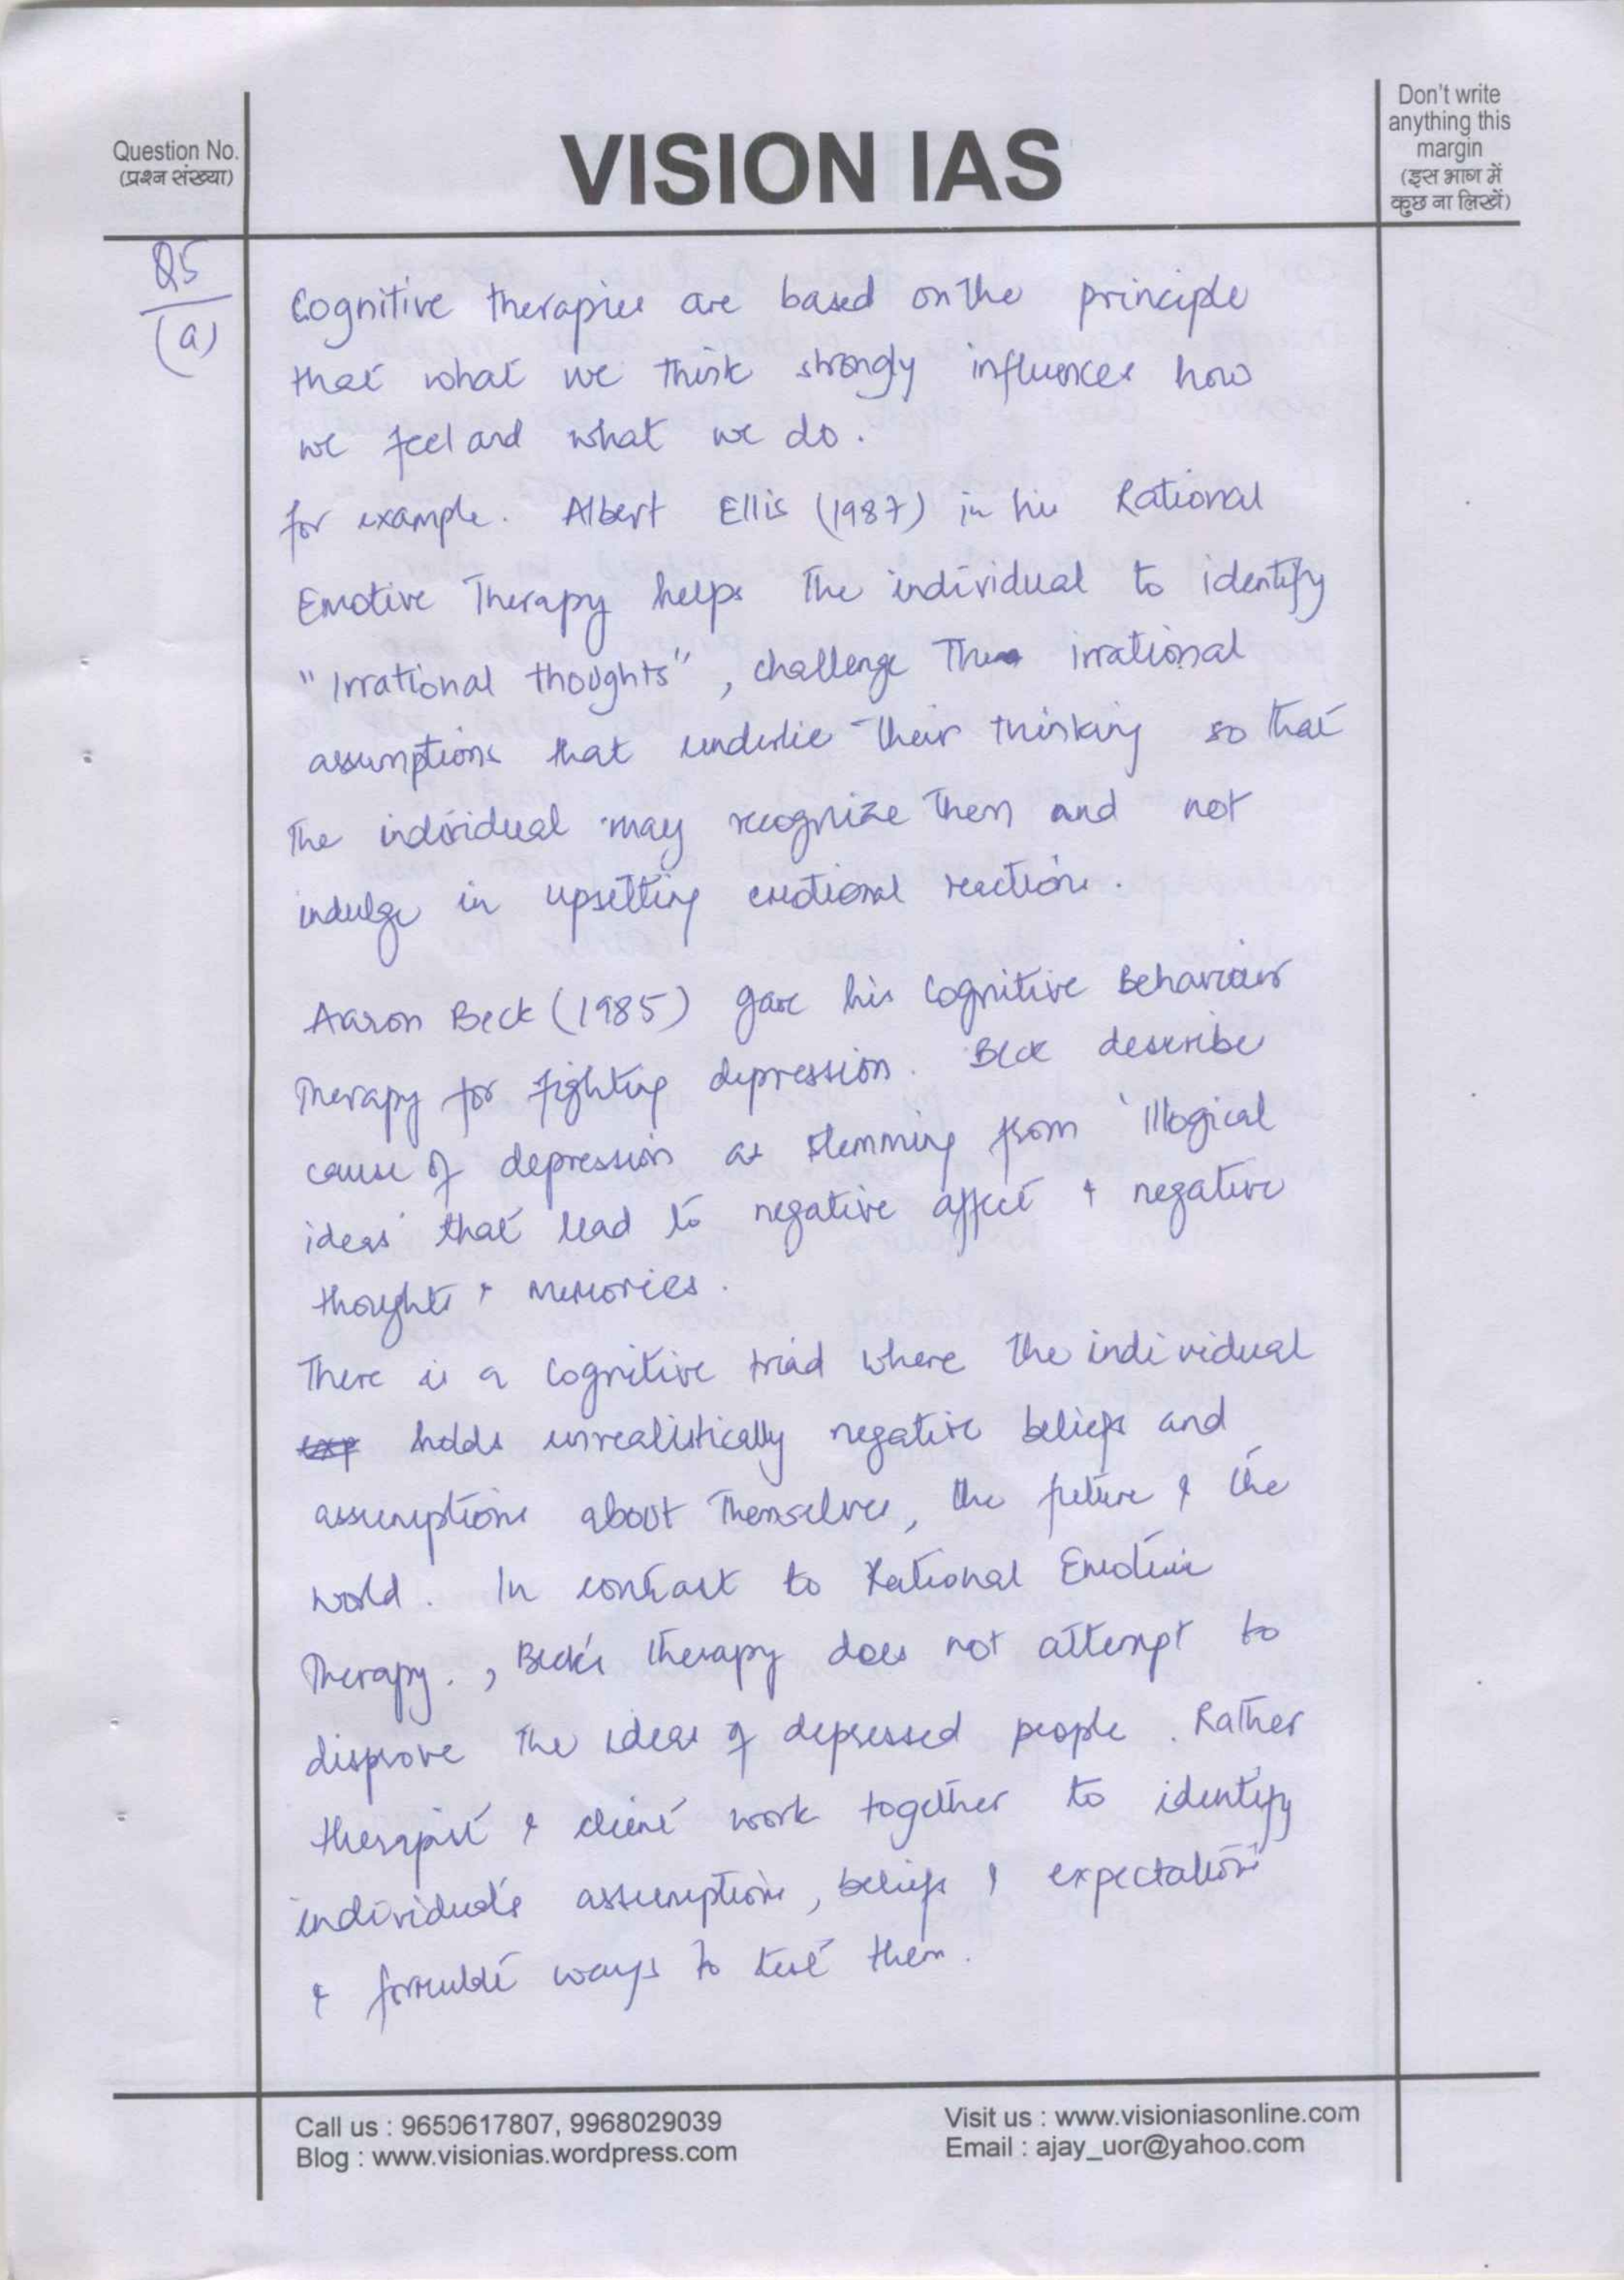 Question No.
(प्रश्न संख्या)
VISION IAS
Don't write
anything this
margin
(इस भाग में
कुछ ना लिखें)
Q5
(a)
Cognitive therapies are based on the principle
that what we think strongly influences how
we feel and what we do.
for example. Albert Ellis (1987) in his Rational
Emotive Therapy helps the individual to identify
"Irrational thoughts", challenge the irrational
assumptions that underlie their thinking so that
the individual may recognize them and not
indulge in upsetting emotional reactions.
Aaron Beck (1985) gave his Cognitive Behaviour
Therapy for fighting depression. Beck describe
cause of depression as stemming from 'illogical
ideas' that lead to negative affect & negative
thoughts & memories.
There is a Cognitive triad where the individual
exp holds unrealistically negative beliefs and
assumptions about themselves, the future & the
world. In contrast to Rational Emotive
Therapy., Beck's therapy does not attempt to
disprove the ideas of depressed people. Rather
therapist & client work together to identify
individual's assumptions, beliefs & expectations
& formulate ways to test them.
Call us : 9650617807, 9968029039
Blog : www.visionias.wordpress.com
Visit us : www.visioniasonline.com
Email : ajay_uor@yahoo.com